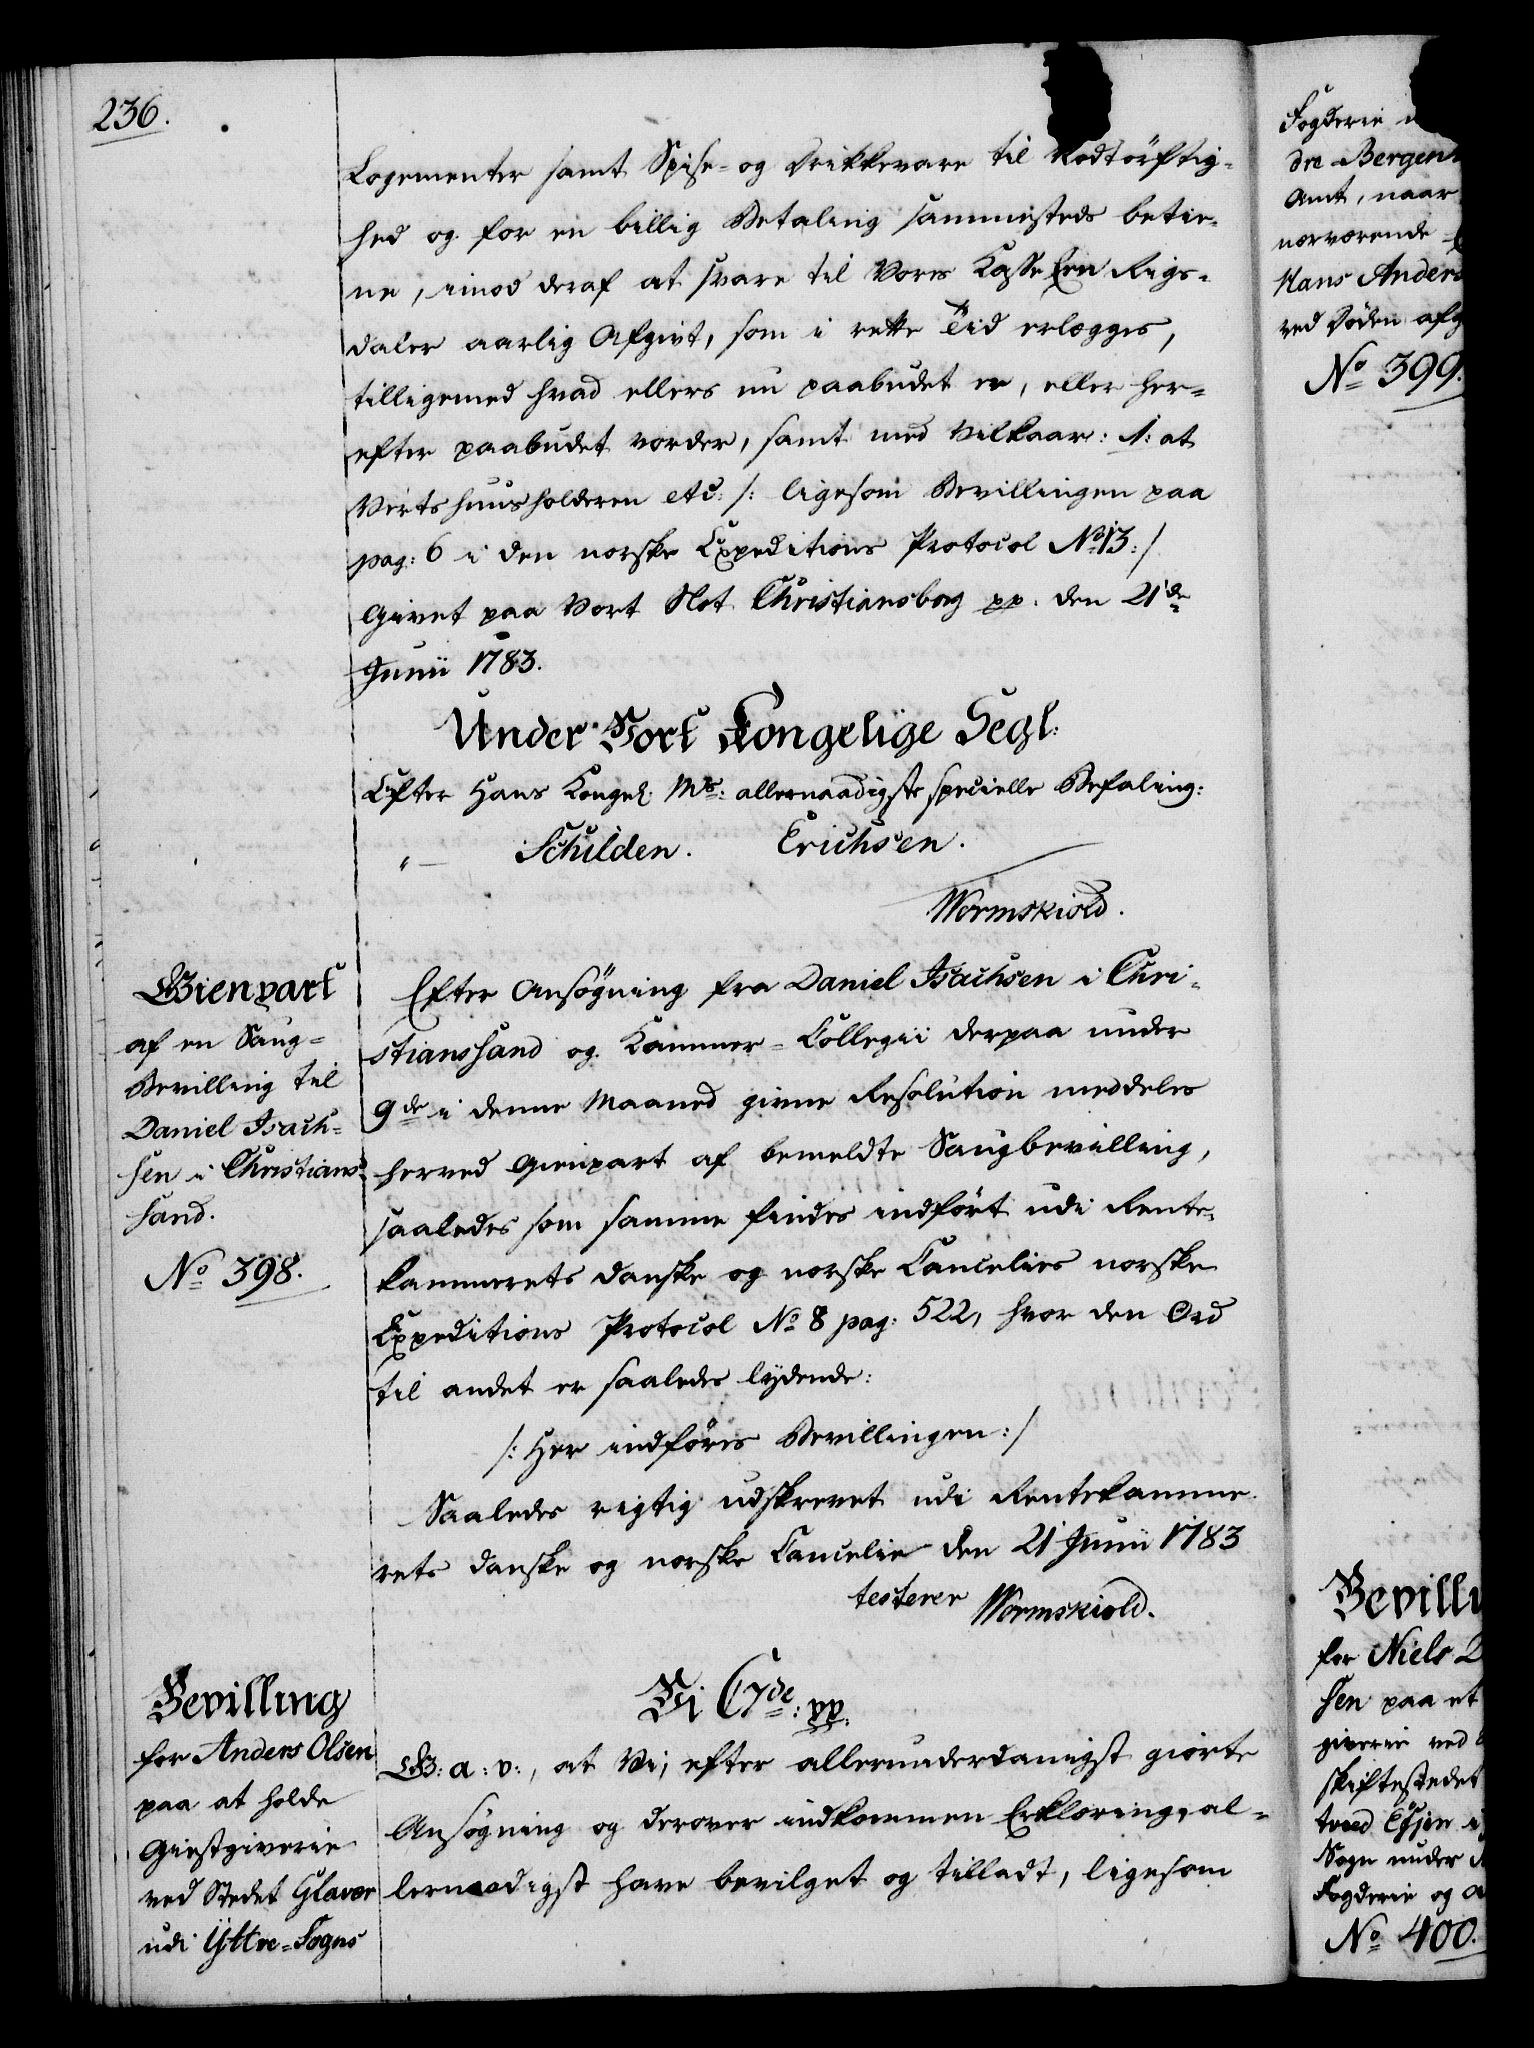 236.
Logementer samt Spise- og Drikkevare til Nødtörftig-
hed og for en billig Betaling sammesteds betie-
ne, imod deraf at svare til Vores Kasse Een Rigs-
daler aarlig Afgivt, som i rette Tiid erlægges,
tilligemed hvad ellers nu paabudet er, eller her-
efter paabudet vorder, samt med Vilkaar: 1: at
Vertshuusholderen etc: /: ligesom Bevillingen paa
pag: 6 i den norske Expeditions Protocol No 13:/
Givet paa Vort Slot Christiansborg pp. den 21de
Junii 1783.
Under Vort Kongelige Segl:
Efter Hans Kongel. Ms: allernaadigste specielle Befaling:
"— Schilden. Erichsen.
Wormskiold.
Gienpart
af en Saug-
Bevilling til
Daniel Isach-
sen i Christians
sand.
No 398.
Efter Ansøgning fra Daniel Isachsen i Chri-
stianssand og Kammer-Collegii derpaa under
9de i denne Maaned givne Resolution meddeles
herved Gienpart af bemeldte Saugbevilling,
saaledes som samme findes indført udi Rente-
kammerets danske og norske Cancelies norske
Expeditions Protocol No 8 pag: 522, hvor den Ord
til andet er saaledes lydende:
/: Her indføres Bevillingen :/
Saaledes rigtig udskrevet udi Rentekamme-
rets danske og norske Cancelie den 21 Junii 1783
testerer Wormskiold.
Bevilling
for Anders Olsen
paa at holde
Giestgiverie
ved Stedet Glavær
udi Yttre-Sogns
Vi C7de: pp.
G: a: v:, at Vi, efter allerunderdanigst giorte
Ansøgning og derover indkommen Erklæring, al-
lernaadigst have bevilget og tilladt, ligesom
Fogderie
dre Bergen
Amt, naar
nærværende
Hans Anders
ved Døden afg
No 399.
Bevilli
for Niels
sen paa et
giverie ved
skiftestedet
tved
Sogn under
Fogderie og A
No 400.